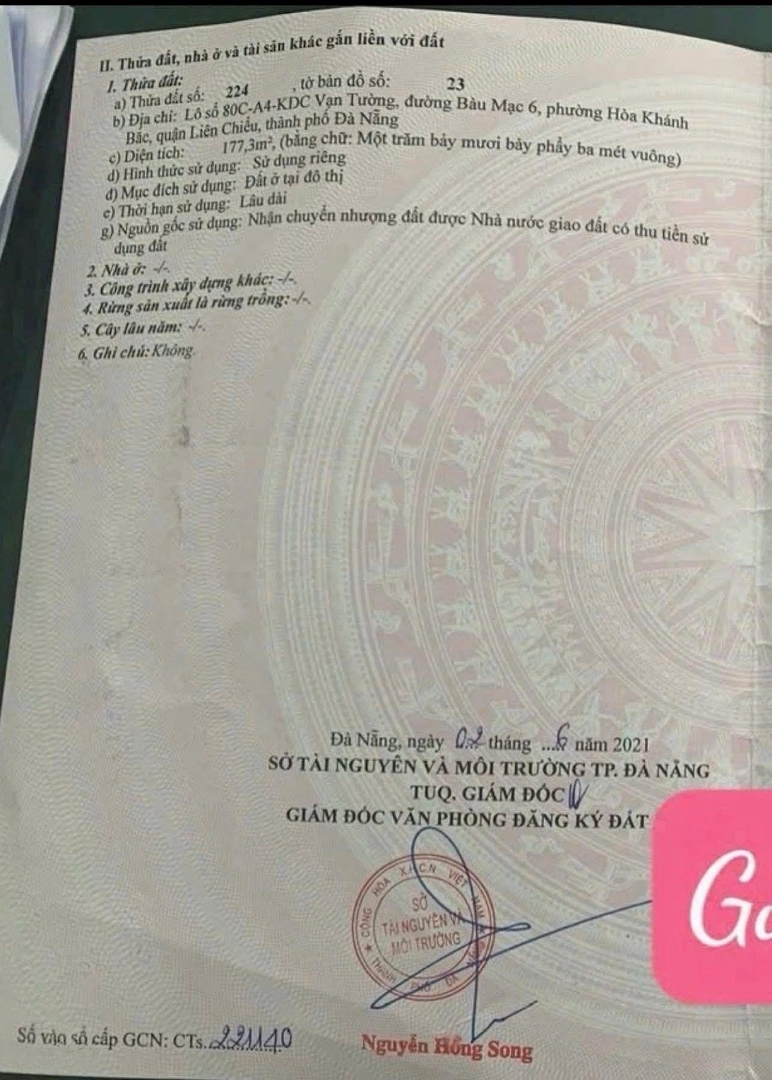 II. Thửa đất, nhà ở và tài sản khác gắn liền với đất
1. Thửa đất:
a) Thửa đất số: 224 , tờ bản đồ số: 23
b) Địa chỉ: Lô số 80C-A4-KDC Vạn Tường, đường Bàu Mạc 6, phường Hòa Khánh
Bắc, quận Liên Chiểu, thành phố Đà Nẵng
c) Diện tích: 177,3m², (bằng chữ: Một trăm bảy mươi bảy phẩy ba mét vuông)
d) Hình thức sử dụng: Sử dụng riêng
đ) Mục đích sử dụng: Đất ở tại đô thị
e) Thời hạn sử dụng: Lâu dài
g) Nguồn gốc sử dụng: Nhận chuyển nhượng đất được Nhà nước giao đất có thu tiền sử
dụng đất
2. Nhà ở: -/-.
3. Công trình xây dựng khác: -/-.
4. Rừng sản xuất là rừng trồng: -/-.
5. Cây lâu năm: -/-.
6. Ghi chú: Không.
Đà Nẵng, ngày 02 tháng ...6 năm 2021
SỞ TÀI NGUYÊN VÀ MÔI TRƯỜNG TP. ĐÀ NẴNG
TUQ. GIÁM ĐỐC
GIÁM ĐỐC VĂN PHÒNG ĐĂNG KÝ ĐẤT
CỘNG HÒA X.H.C.N VIỆT NAM
SỞ
TÀI NGUYÊN VÀ
MÔI TRƯỜNG
THÀNH PHỐ ĐÀ
Nguyễn Hồng Song
Số vào sổ cấp GCN: CTs..221140
Ga